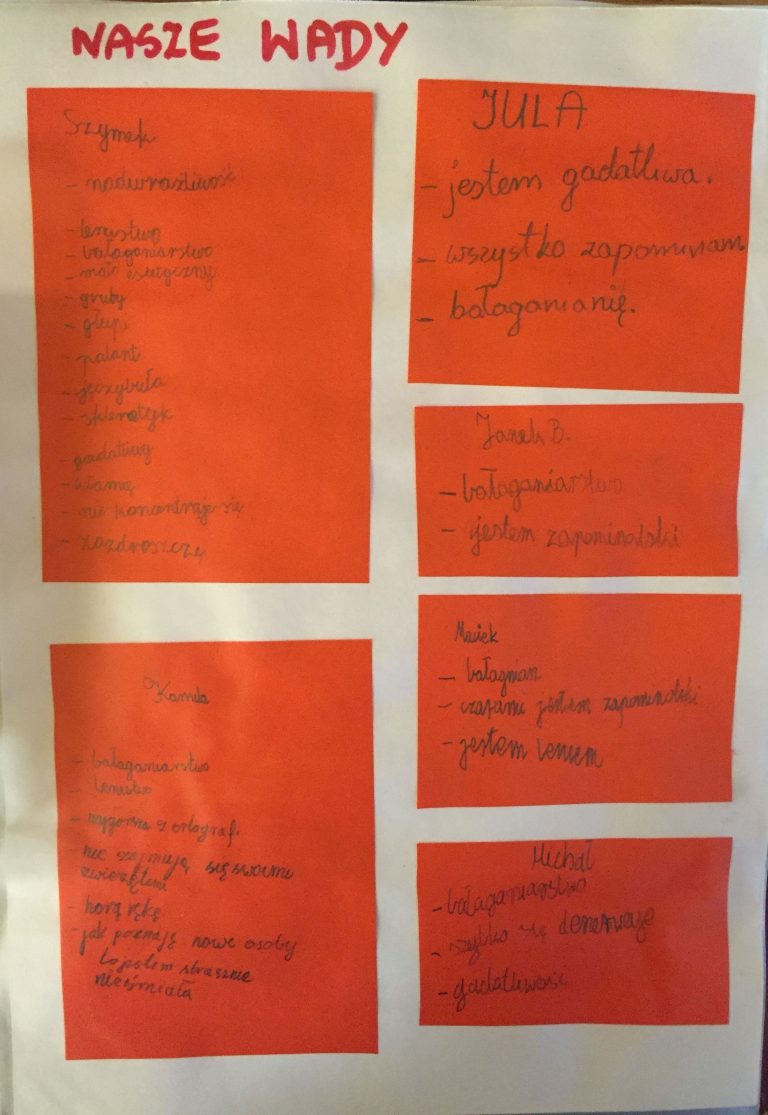 NASZE WADY
Szymek
- nadwrażliwość
- lenistwo
- bałaganiarstwo
- mało estetyczny
- gruby
- głupi
- palant
- jęczybuła
- sklerotyk
- gadatliwy
- kłamę
- nie koncentruje się
- zazdroszczę
JULA
- jestem gadatliwa.
- wszystko zapominam
- bałaganianię.
Janek B.
- bałaganiarstwo
- jestem zapominalski
Maciek
- bałagman
- czasami jestem zapominalski
- jestem leniem
Kamila
- bałaganiarstwo
- lenistwo
- z ortograf.
- nie zajmują się swoimi
zwierzętemi
- rękę
- jak poznają nowe osoby
to jestem strasznie
nieśmiała
Michał
- bałaganiarstwo
- szybko się denerwuje
- gadatliwość